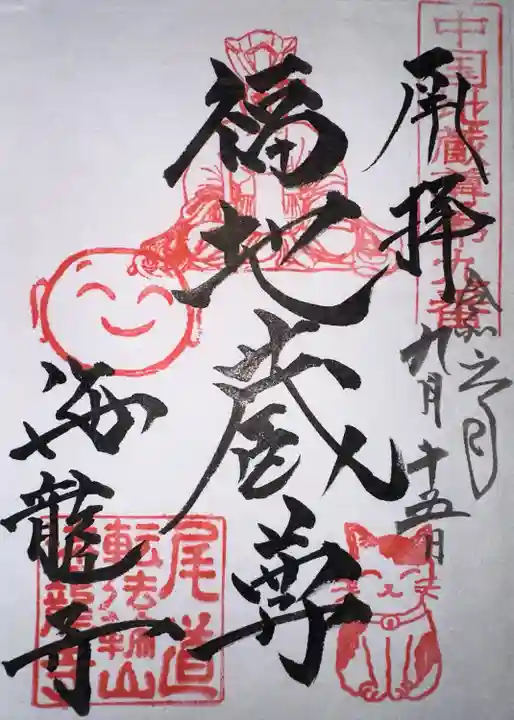 中国地蔵尊第九番
奉拝
令和六年
九月十五日
福地蔵尊
海龍寺
尾道
転法輪山
海龍寺